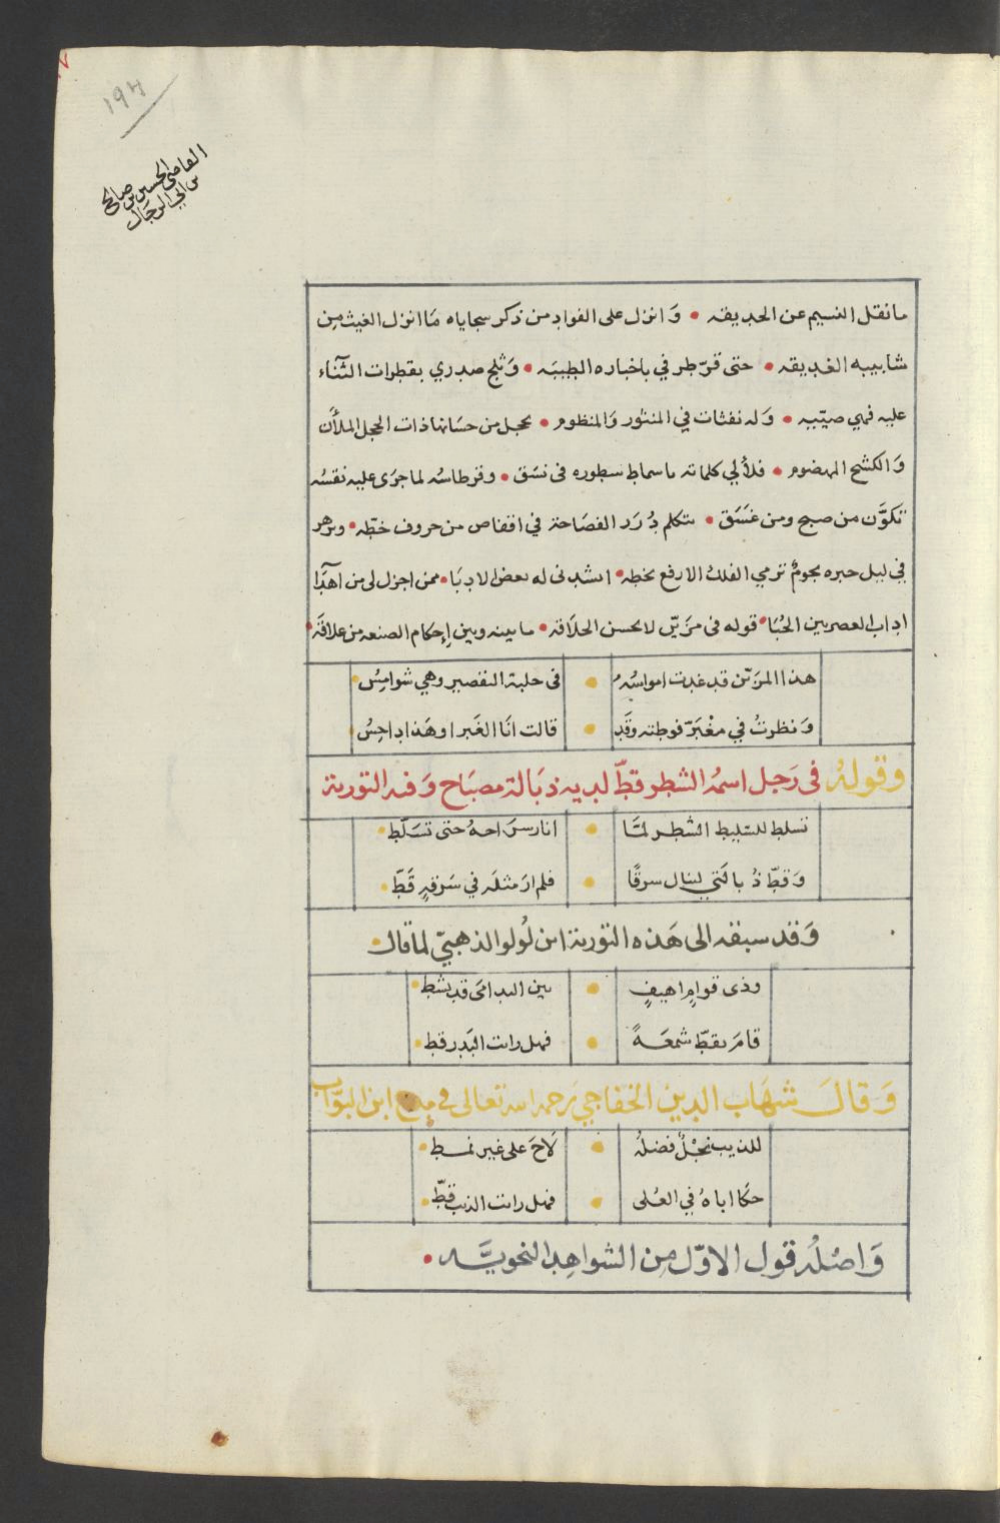 ١٩٢
القاضي الحسين بن صالح
بن ابي الرجال
ما نقل النسيم عن الحديقه • وَانزل على الفواد من ذكر سجاياه مَا انزل الغيث مِن
شابيبه الغديقه • حتى قرّطرفي باخباره الطيبَه • وَثلج صدري بقطرات الثَّنآء
عليه فهي صيّبه • وَله نفثات في المنثور وَالمنظوم • يخجل من حسَانها ذات الحجل الملآن
وَالكشح المهضوم • فلألي كلماته باسماط سطوره في نسَق • وقرطاسه لما جرَى عليه نقسُه
تكوَّن من صبح ومن غسَق • يتكلم بدُرَد الفصَاحة في اقفاص من حروف خطّه • ويزهر
في ليل حبره نجومٌ ترمي الفلك الارفع بخطه • انشدني له بعض الادبَا • ممن اجزل لي من اهدَا
اداب العصر بين الحُبَا • قوله في مزَيّن لا يحسن الحلاقه • ما بينه وبين إحكام الصنعه من علاقَه •
هذا المزيّن قد غدت امواسُهُ • في حلبة التقصير وهي شوامِسُ •
وَنظرتُ في مغْبَرّ فوطته وقَد • قالت انَا الغَبرا وهَذا داحِسُ •
وقولهُ في رَجل اسمُه الشطر قطّ لديه ذبَالة مصبَاح وَفيه التورية
تسلط للسّليط الشطر لمّا • انار سرَاجهُ حتى تسَلّط •
وَقطّ ذُبالتي لينال سرقًا • فلم ارَ مثلَه في سَرقهِ قَطّ •
وَقد سبقه الى هَذه التورية ابن لُولو الذهبيّ لما قال •
وذى قوامٍ اهيفٍ • بين الندامَى قد نشط •
قامَ يقطّ شمعَـةً • فهل رايت البَدر قط •
وَقالَ شهَاب الدين الخفاجي رَحمه الله تعالى في مدح ابن البوّاب
للذيب نجْلٌ فضلهُ • لَاحَ على غير نمـط •
حكَا اباهُ في العُلى • فهل رايت الذيب قَطّ •
وَاصْلُه قول الاوّل مِن الشواهِد النحويَّـه •